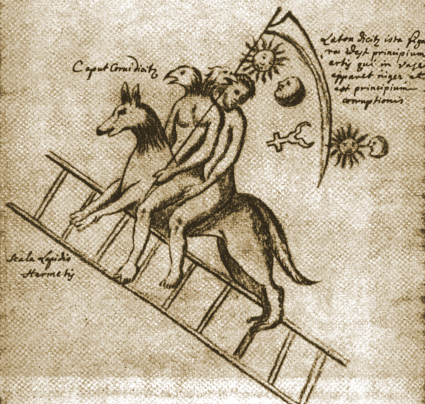 Caput Corui dicitz
Laton dicitz ista figu
ra principium
artis qui in vase
apparet niger
est principium
corruptionis
Scala Lapidis
Hermetis